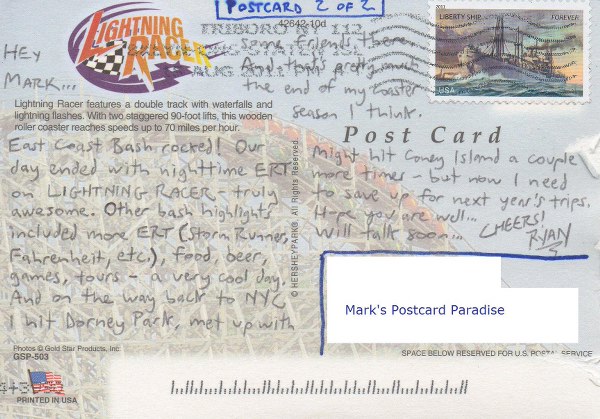 POSTCARD 2 OF 2
42642-10d
LIGHTNING RACER
TRIBORO NY 112
AUG 2011 PM
2011
LIBERTY SHIP
FOREVER
USA
HEY
MARK...
Lightning Racer features a double track with waterfalls and
lightning flashes. With two staggered 90-foot lifts, this wooden
roller coaster reaches speeds up to 70 miles per hour.
East Coast Bash rocked! Our
day ended with nighttime ERT
on LIGHTNING RACER - truly
awesome. Other bash highlights
included more ERT (Storm Runner,
Fahrenheit, etc.), food, beer,
games, tours - a very cool day.
And on the way back to NYC
I hit Dorney Park, met up with
some friends there.
And that's pretty much
the end of my coaster
season I think.
Post Card
Might hit Coney Island a couple
more times - but now I need
to save up for next year's trips.
Hope you are well...
Will talk soon...
CHEERS!
RYAN
© HERSHEYPARK® All Rights Reserved.
Mark's Postcard Paradise
Photos © Gold Star Products, Inc.
GSP-503
SPACE BELOW RESERVED FOR U.S. POSTAL SERVICE
PRINTED IN USA